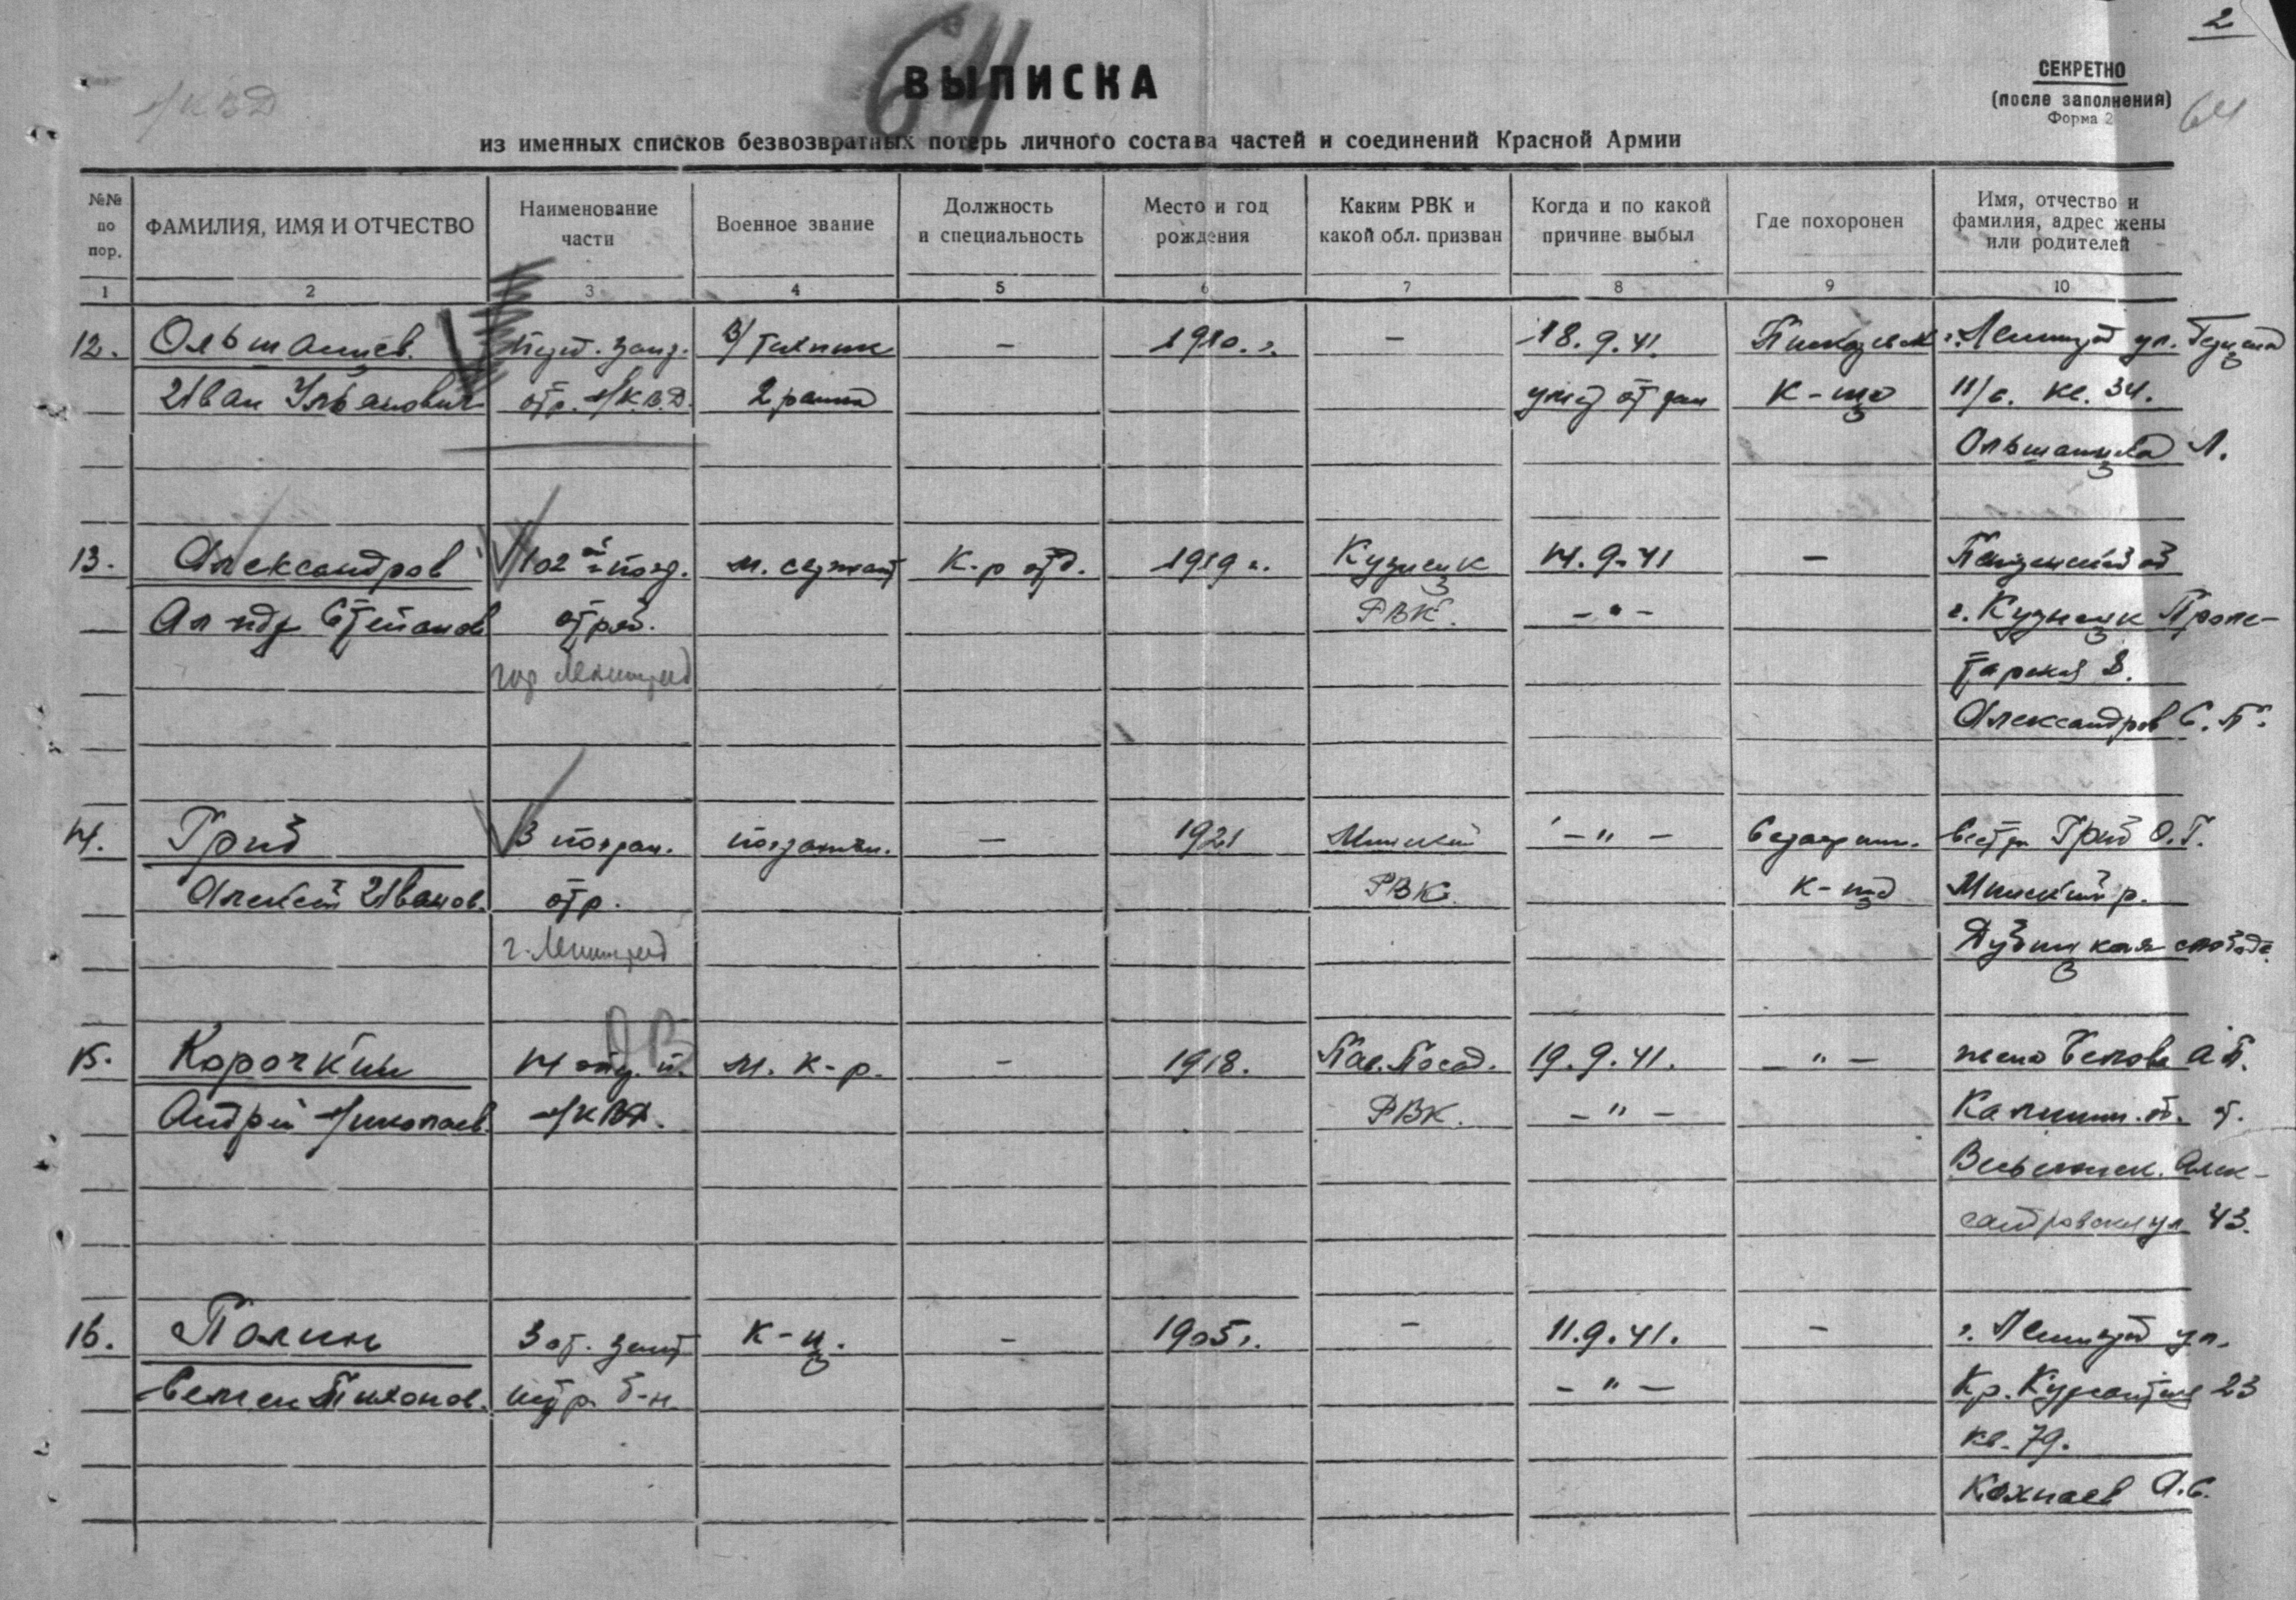 2
64
ВЫПИСКА
СЕКРЕТНО
(после заполнения)
Форма 2
64
НКВД
из именных списков безвозвратных потерь личного состава частей и соединений Красной Армии
№№ по пор.
ФАМИЛИЯ, ИМЯ И ОТЧЕСТВО
Наименование части
Военное звание
Должность и специальность
Место и год рождения
Каким РВК и какой обл. призван
Когда и по какой причине выбыл
Где похоронен
Имя, отчество и фамилия, адрес жены или родителей
1 2 3 4 5 6 7 8 9 10
12. Ольшанцев. В/техник – 1910. г. – 18. 9. 41. г. Ленинград ул.
Иван Ульянович отр. НКВД. 2 ранга от ран К-ще 11/6. кв. 34.
Ольшанцева Л.
13. Александров 102й погр. м. сержант К-р отд. 1919 г. Кузнецк 14. 9. 41 –
Ал-ндр Степанов отряд. РВК. – " – г. Кузнецк Проле-
гор Ленинград тарская 8.
Александров С. П.
14. Гриб 3 погран. пограничн. – 1921 Минский – " – сестра Гриб О. Г.
Алексей Иванов. отр. РВК. К-ще Минский р.
г. Ленинград слобода
15. Корочкин 14 м. к-р. – 1918. Пав. Посад. 19. 9. 41. – " – жена Белова А. П.
Андрей Николаев. НКВД. РВК. – " – Калинин. об. г.
Весьегонск. Алек-
сандровская ул. 43.
16. Палин 3 от. К-ц. – 1905 г. – 11. 9. 41. – г. Ленинград ул.
Семен Тихонов. б-н. – " – Кр. Курсантов 23
кв. 79.
А. С.